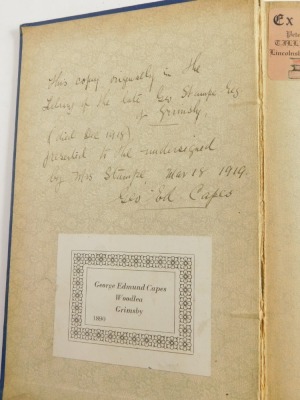 This copy originally in the
Library of the late Geo. Stampe Esq
of Grimsby
(died Dec 1918)
presented to the undersigned
by Mrs Stampe, Mar 18 1919.
Geo Ed. Capes
George Edmund Capes
Woodlea
Grimsby
1890
Ex
Pete
TILL
Lincolnshi